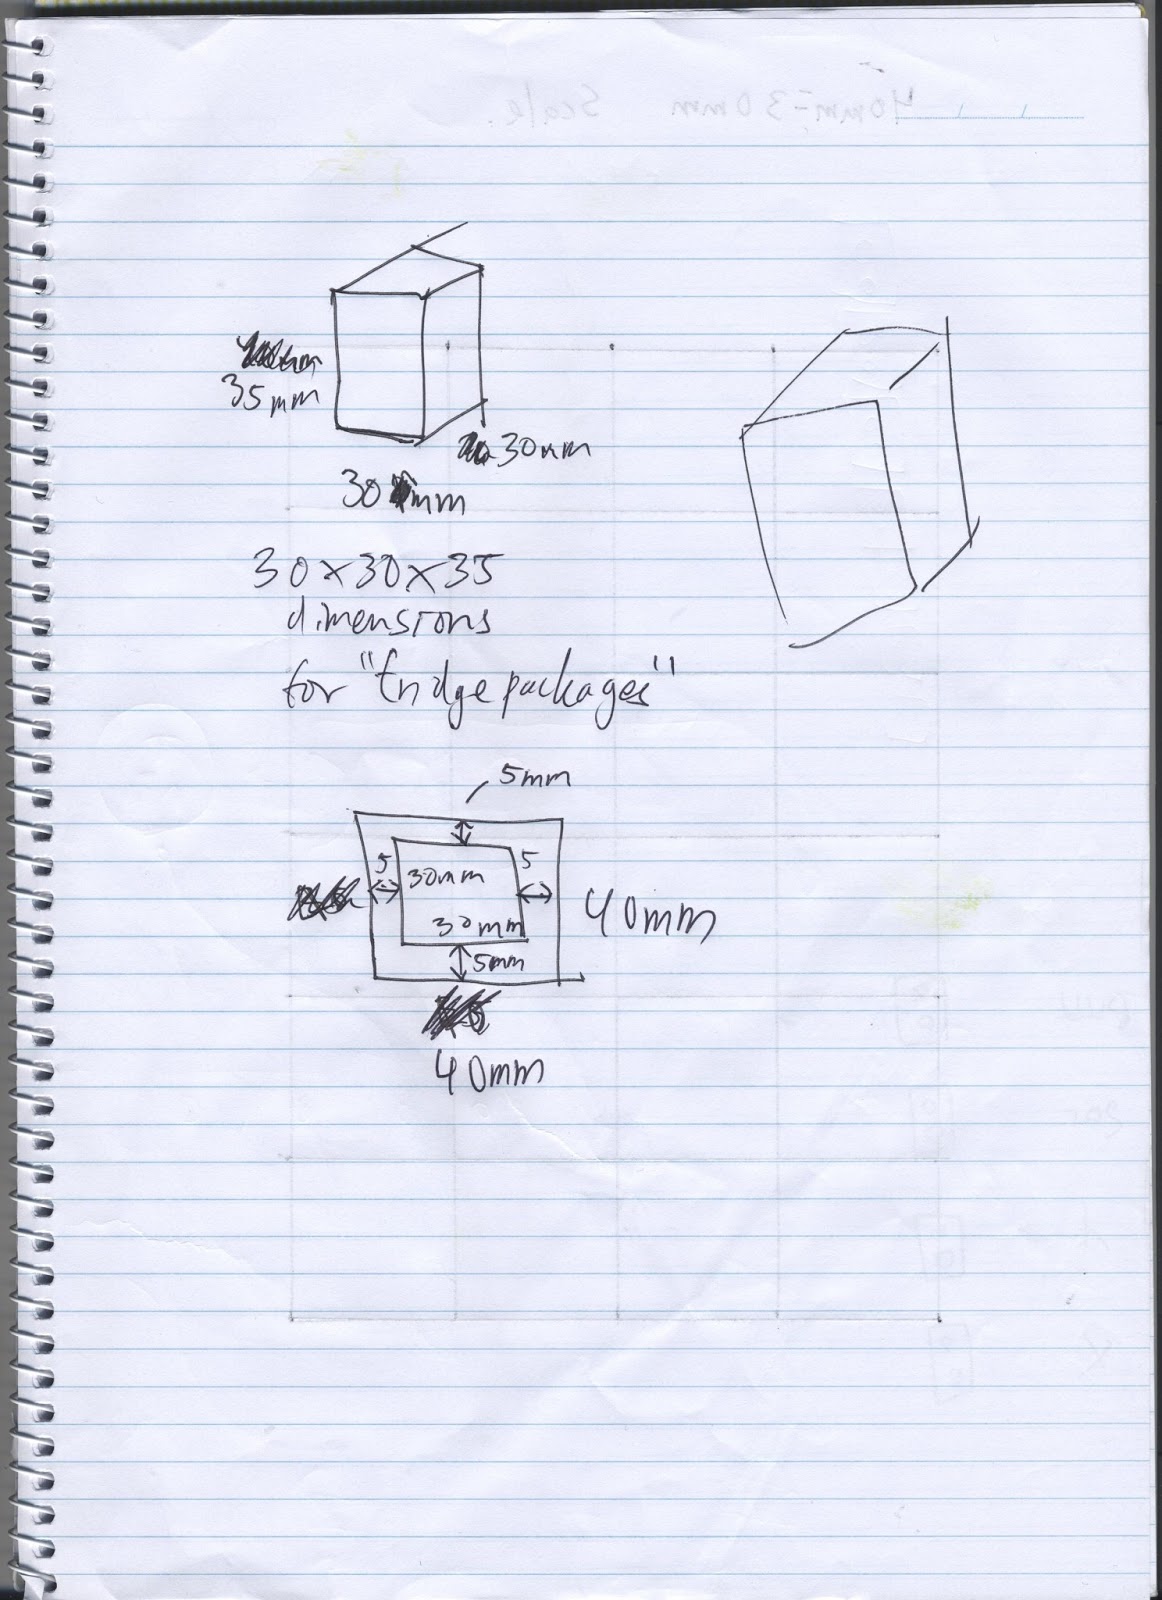 35mm
30mm
30mm
30x30x35
dimensions
for "fridge packages"
5mm
5
5
30mm
30mm
40mm
5mm
40mm